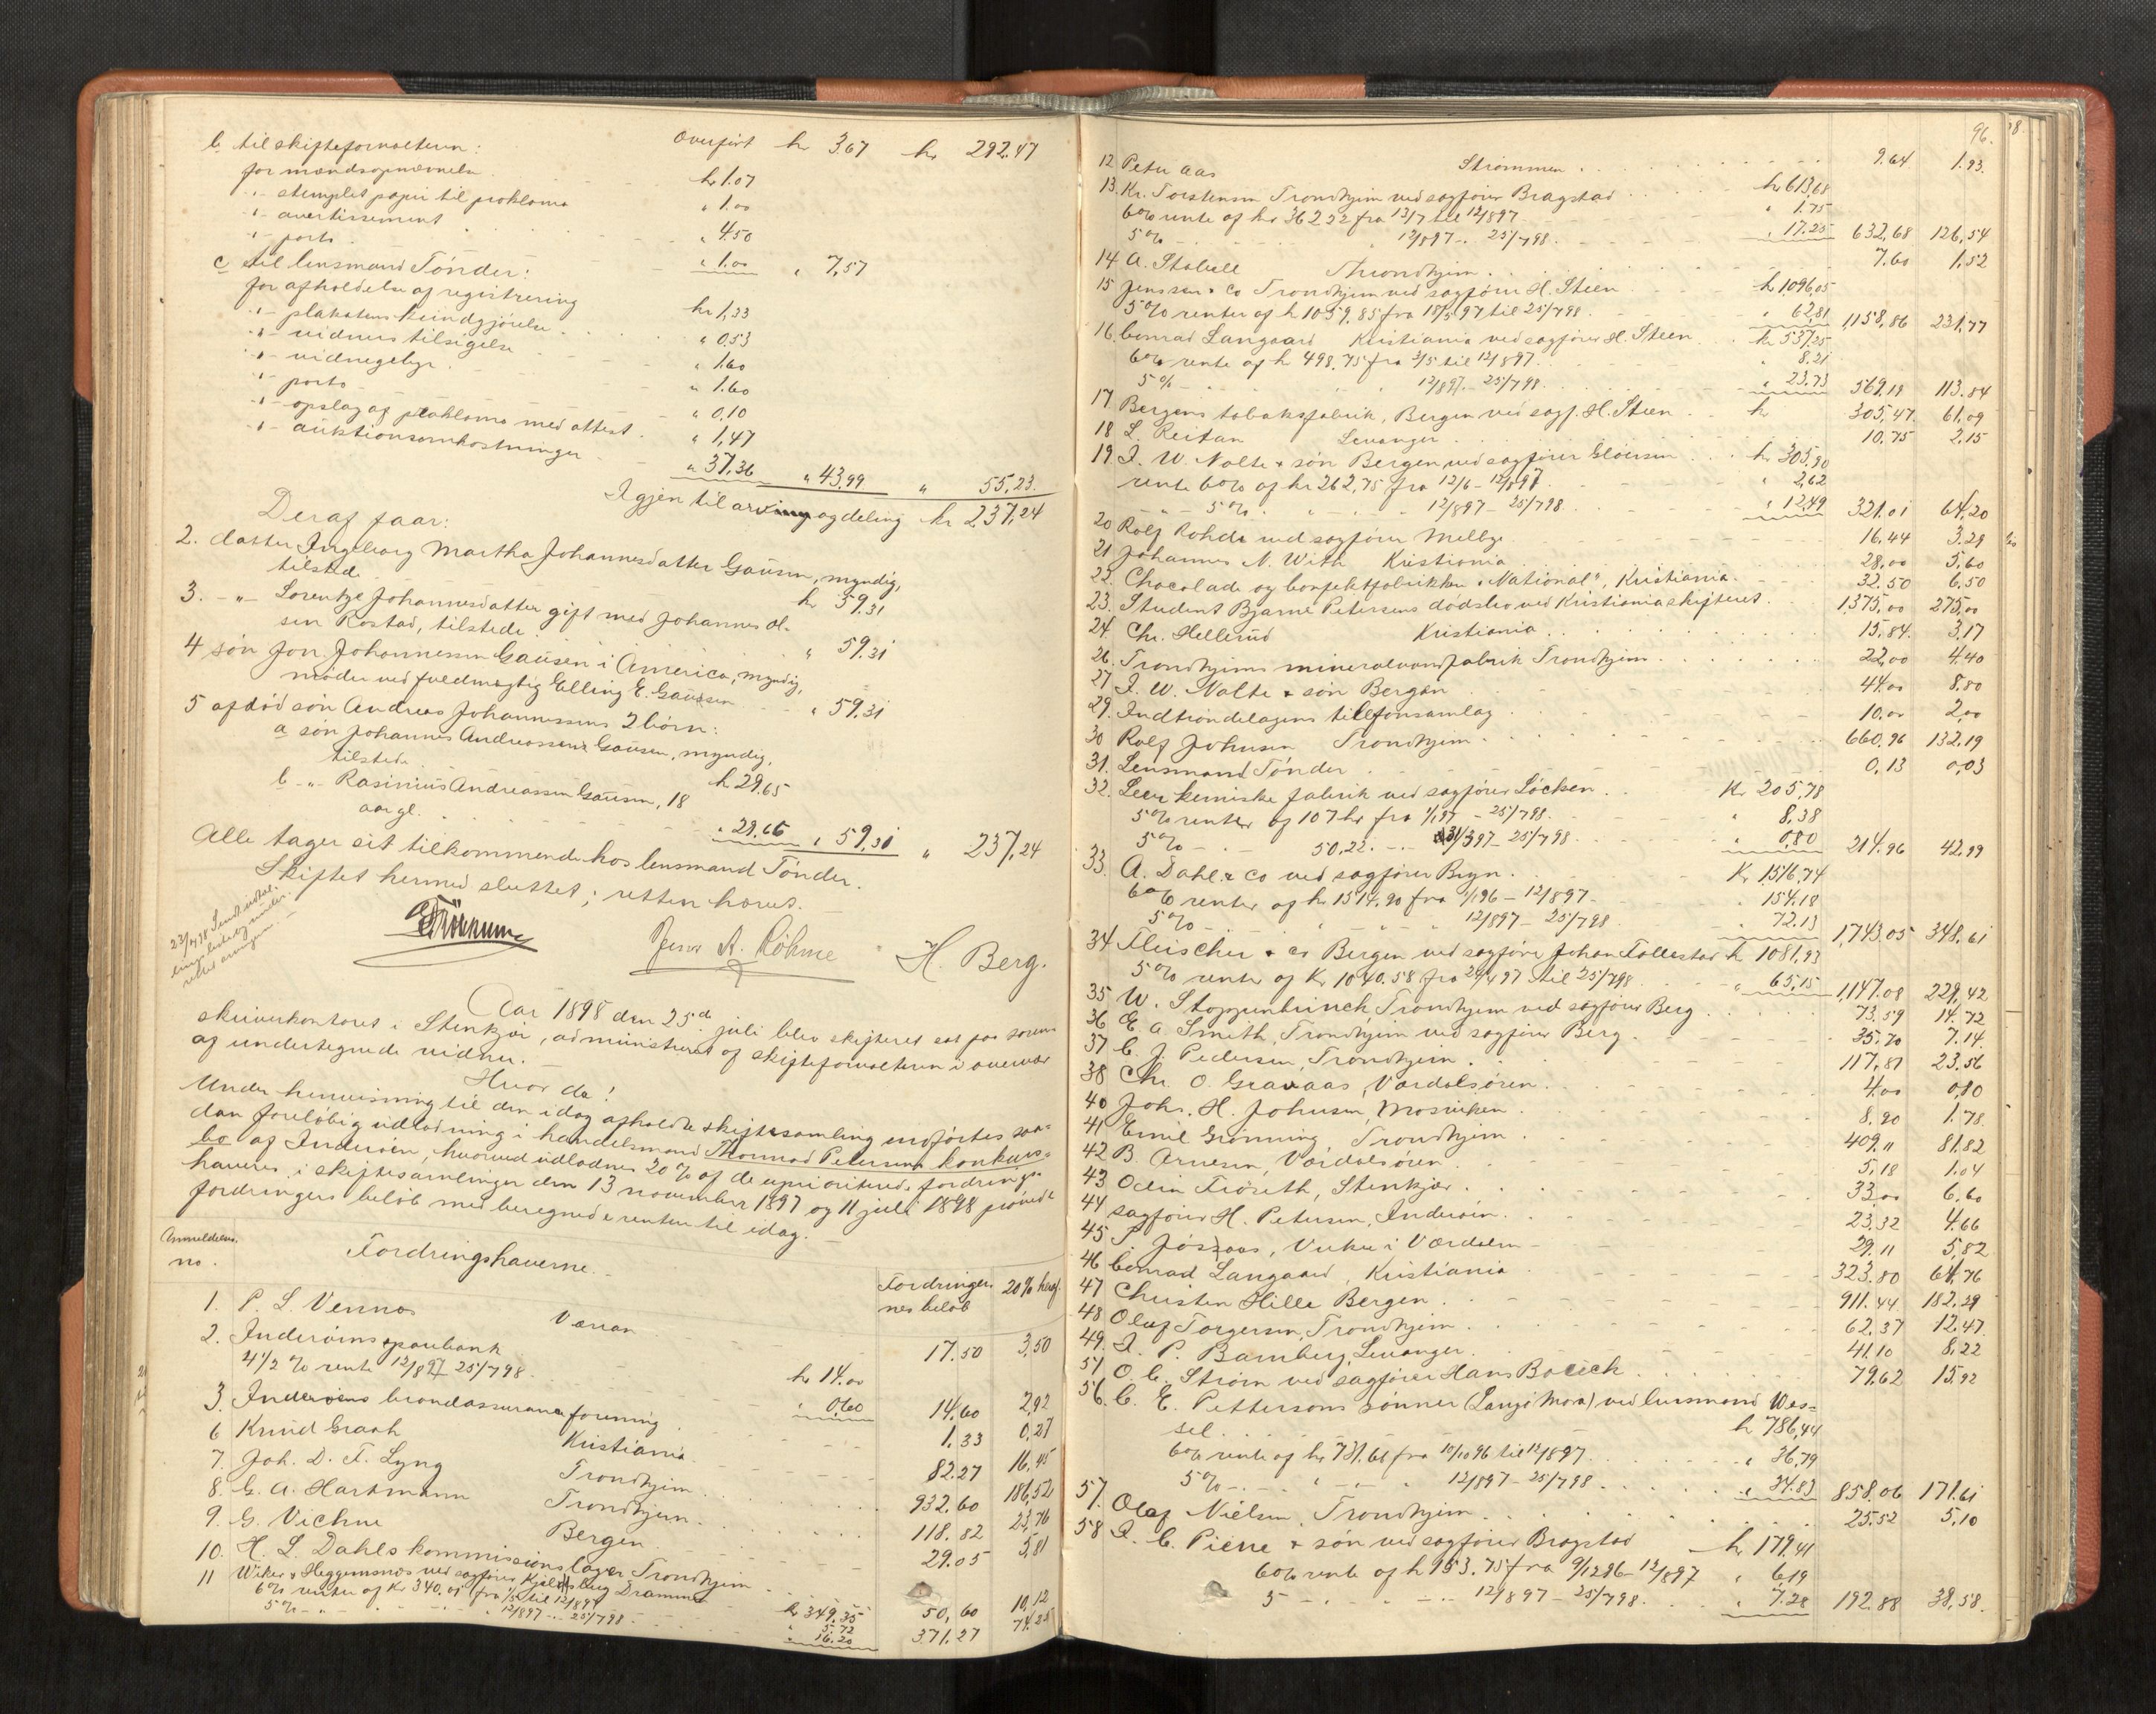 Overført kr 3.67 kr 292.47
b til skifteforvalteren:
for mændsopnævnelse kr 1.07
-"- stemplet papir til proklama " 1.00
-"- avertissement " 4.50
-"- porto " 1.00 " 7,57
c til lensmand Tønder:
for afholdelse af registrering kr 1,33
-"- plakatens kundgjørelse " 0.53
-"- vidners tilsigelse " 1.60
-"- vidnegebyr " 1.60
-"- porto " 0,10
-"- opslag af proklama med attest " 1,47
-"- auktionsomkostninger " 37,36 " 43,99 " 55,23.
Igjen til arving og deling kr 237,24
Deraf faar:
2. datter Ingeborg Martha Johannesdatter Gausen, myndig,
tilstede kr 59.31
3. -"- Lorentze Johannesdatter gift med Johannes Ol-
sen Rostad, tilstede " 59.31
4 søn Jon Johannessen Gausen i America, myndig,
møder ved fuldmægtig Elling E. Gausen " 59.31
5 afdød søn Andreas Johannessens 2 børn:
a søn Johannes Andreassen Gausen, myndig,
tilstede kr 29.65
b -"- Rasinius Andreassen Gausen, 18
aar gl. " 29.66 " 59,31 " 237,24
Alle tager sit tilkommende hos lensmand Tønder.
Skiftet hermed sluttet; retten hævet.
Jens A. Røhme H. Berg.
Aar 1898 den 25de juli blev skifteret sat paa soren-
skriverkontoret i Stenkjær, administreret af skifteforvalteren i overvær
af undertegnede vidner.
Hvor da!
Under henvisning til den idag afholdte skiftesamling indførtes saa-
dan foreløbig udlodning i handelsmand Thomas Petersens konkurs-
bo af Inderøen, hvorved udlodnes 20 % af de uprioriterede fordrings-
haveres i skiftesamlinger den 13 november 1897 og 11 juli 1898 prøvede
fordringers beløb med beregnede renter til idag.
Anmeldens. no. Fordringshaverne. Fordringer- nes beløb 20% heraf.
1. P. L. Vennes Værran 17.50 3,50
2. Inderøens sparebank kr 14.00
4 1/2 % rente 12/8 97 25/7 98 " 0,60 14,60 2,92
3. Inderøens brandassuranceforening 1,33 0,27
6 Knud Graah Kristiania 82.27 16,45
7. Joh. D. F. Lyng Trondhjem 932.60 186,52
8. G. A. Hartmann Trondhjem 118.82 23,76
9. G. Vichne Bergen 29.05 5,81
10. H. L. Dahls kommissionslager Trondhjem 50,60 10,12
11 Wiker & Heggemsnos ved sagfører Kjeldsberg Drammen kr 349.35
6% renter af Kr 340.01 fra 1/5 til 12/8 97 " 5.72
5% -"- 12/8 97 - 25/7 98 " 16.20 371.27 74.25
96.
12 Peter Aas Strømmen 9.64 1.93.
13. Kr. Torstensen Trondhjem ved sagfører Bragstad kr 613,68
6% rente af kr 362 32 fra 13/7 til 12/8 97 " 1.75
5% 12/8 97 - 25/7 98 " 17.25 632,68 126,54
14 A. Stabell Throndhjem 7.60 1,52
15 Jenssen & Co Trondhjem ved sagfører H. Steen kr 1,096,05
5% renter af kr 1059,85 fra 18/5 97 til 25/7 98 " 62,81 1,158,86 231,77
16. Conrad Langaard Kristiania ved sagfører H. Steen kr 537,25
6% rente af kr 498,75 fra 3/5 til 12/8 97 " 8,21
5% 12/8 97 - 25/7 98 " 23,73 569,19 113,84
17 Bergens tobaksfabrik, Bergen ved sagf. H. Steen kr 305,47. 61,09
18 L. Reitan Levanger 10.75 2.15
19. I. W. Nolte & søn Bergen ved sagfører Gløersen kr 305,90
rente 6% af kr 262,75 fra 12/6 - 12/8 97 " 2,62
5% 12/8 97 - 25/7 98 " 12,49 321.01 64,20
20 Rolf Rohde ved sagfører Melbye 16.44 3.29
21 Johannes N. With Kristiania 28,00 5,60
22. Chocolade og konfektfabrikken "National", Kristiania 32.50 6,50
23. Student Bjarne Petersens dødsbo ved Kristiania skifteret 1,375,00 275,00
24. Chr. Hellerud Kristiania 15,84. 3,17
26. Trondhjems mineralvandfabrik Trondhjem 22,00 4.40
27 I. W. Nolte & søn Bergen 44.00 8,80
29. Indtrøndelagens telefonsamlag 10,00 2,00
30 Rolf Johnsen Trondhjem 660,96 132,19
31. Lensmand Tønder 0,13 0,03
32. Leer kemiske fabrik ved sagfører Løcken Kr 205,78
5% renter af 107 kr fra 1/1 97 - 25/7 98 " 8,38
5% 50,22 31/3 97 - 25/7 98 " 0,80 214.96 42,99
33. A. Dahl & Co ved sagfører Bryn Kr 1516,74
6% renter af kr 1514.90 fra 1/1 96 - 12/8 97 " 154,18
5% 12/8 97 - 25/7 98 " 72.13 1,743,05 348,61
34 Fleischer & Co Bergen ved sagfører Johan Follestad kr 1081,93
5% rente af Kr 1040.58 fra 24/4 97 til 25/7 98 " 65,15 1,147.08 229,42
35 W. Stoppenbrinck, Trondhjem ved sagfører Berg 73.59 14.72
36 E. A Smith, Trondhjem ved sagfører Berg 35.70 7.14
37 C. J. Pedersen, Trondhjem 117.81 23.56
38 Chr. O. Gravaas, Værdalsøren 4.00 0,80
40 Johs. H. Johnsen, Mosviken 8.90 1.78.
41 Emil Grønning, Trondhjem 409,11 81.82
42 B. Arnesen, Værdalsøren 5,18 1.04
43 Odin Frøseth, Stenkjær 33,00 6,60
44 sagfører H. Petersen, Inderøen 23.32 4.66
45 P. Jøssaas, Vuku i Værdalen 29.11 5,82
46 Conrad Langaard, Kristiania 323.80 64,76
47 Christen Hille Bergen 911.44 182.29
48 Oluf Torgersen, Trondhjem 62.37 12.47.
49. I. P. Bamberg, Levanger 41.10 8,22
51 O. C. Strøm ved sagfører Hans Bauck 79,62 15,92
56 C. E. Pettersons sønner (Langø Mora) ved lensmand Wes-
sel kr 786,44
6% rente af kr 731.61 fra 10/10 96 til 12/8 97 " 36,79
5% 12/8 97 - 25/7 98 " 34.83 858.06 171.61
57. Olaf Nielsen, Trondhjem 25.52 5,10
58 I. C. Piene & søn ved sagfører Bragstad kr 179,41
6% rente af kr 153.75 fra 9/12 96 - 12/8 97 " 6,19
5 12/8 97 - 25/7 98 " 7.28 192.88 38,58.